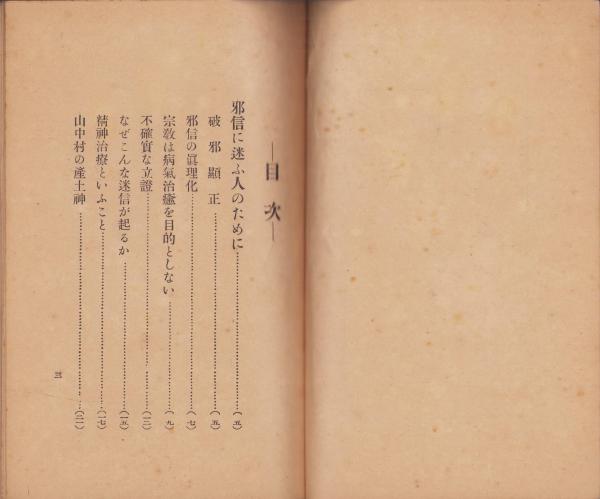 ―目次―
邪信に迷ふ人のために……(五)
破邪顯正……(五)
邪信の眞理化……(七)
宗敎は病氣治癒を目的としない……(九)
不確實な立證……(一二)
なぜこんな迷信が起るか……(一五)
精神治療といふこと……(一七)
山中村の產土神……(二一)
三